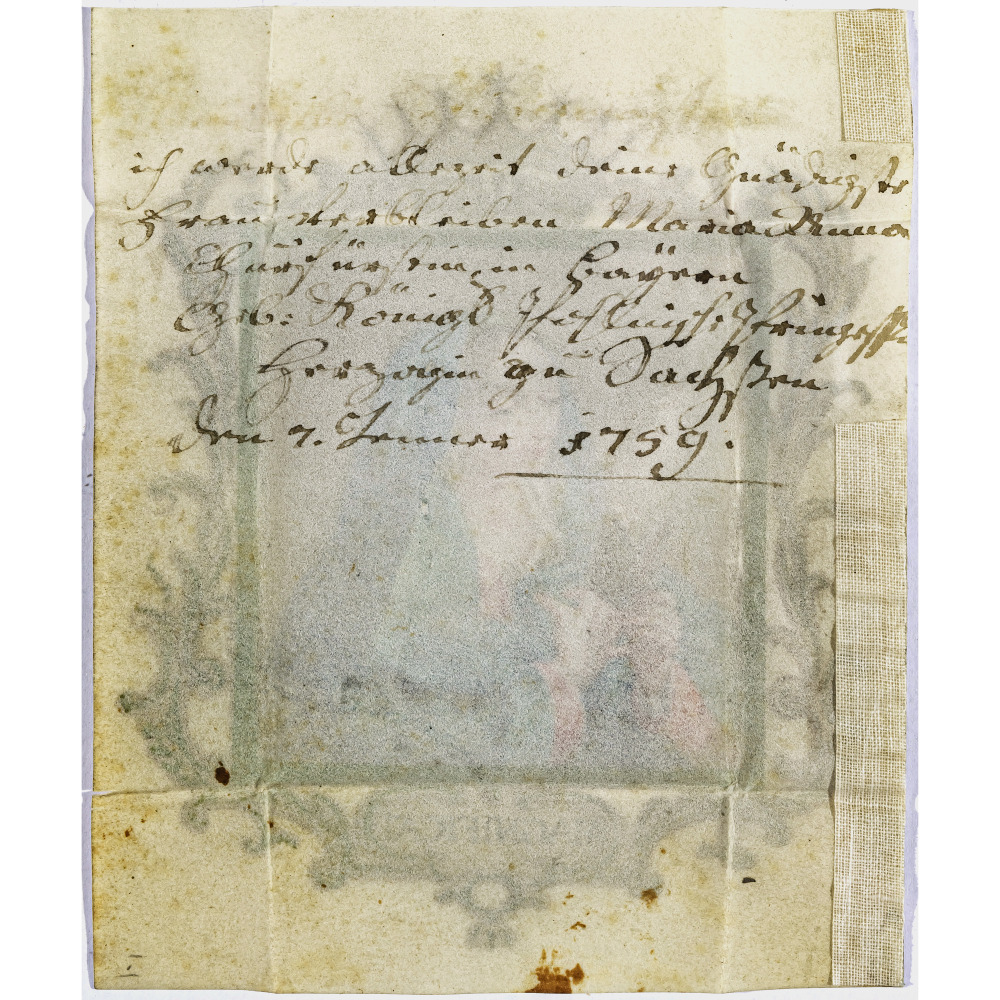 ich werde allezeit deine Gnädigste
Frau verbleiben Maria Anna
Churfürstin in Bayern
Geb: Königl Pohlnische Prinzessin
Herzogin zu Sachßen
den 7. Jenner 1759.